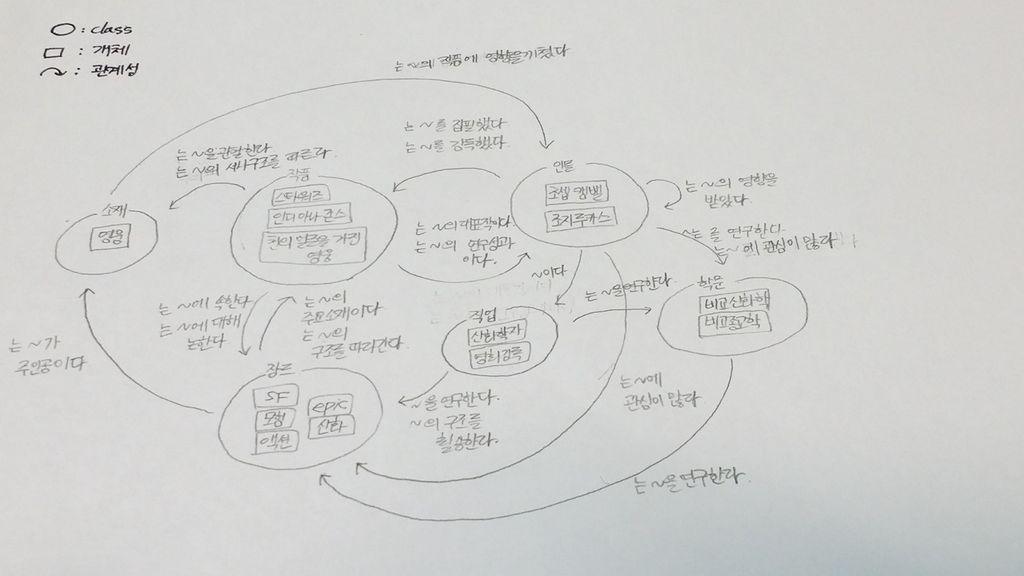 ○ : class
□ : 개체
: 관계성
는 ~의 작품에 영향을 끼쳤다
는 ~을 관찰한다
는 ~의 서사구조를 따른다.
는 ~를 집필했다
는 ~를 감독했다.
소재
영웅
작품
스타워즈
인디아나 존스
천의 얼굴을 가진
영웅
인물
조셉 캠벨
조지루카스
는 ~의 영향을
받았다.
는 ~의 대표작이다
는 ~의 연구성과
이다.
~는 를 연구한다.
는 ~에 관심이 많다
~이다
는 ~을 연구한다.
학문
비교신화학
비교종교학
직업
신화학자
영화감독
는 ~에 속한다
는 ~에 대해
논한다
는 ~의
주요소재이다
는 ~의
구조를 따라간다.
는 ~가
주인공이다
장르
SF
모험
액션
epic
신화
~을 연구한다.
~의 구조를
활용한다.
는 ~에
관심이 많다
는 ~을 연구한다.